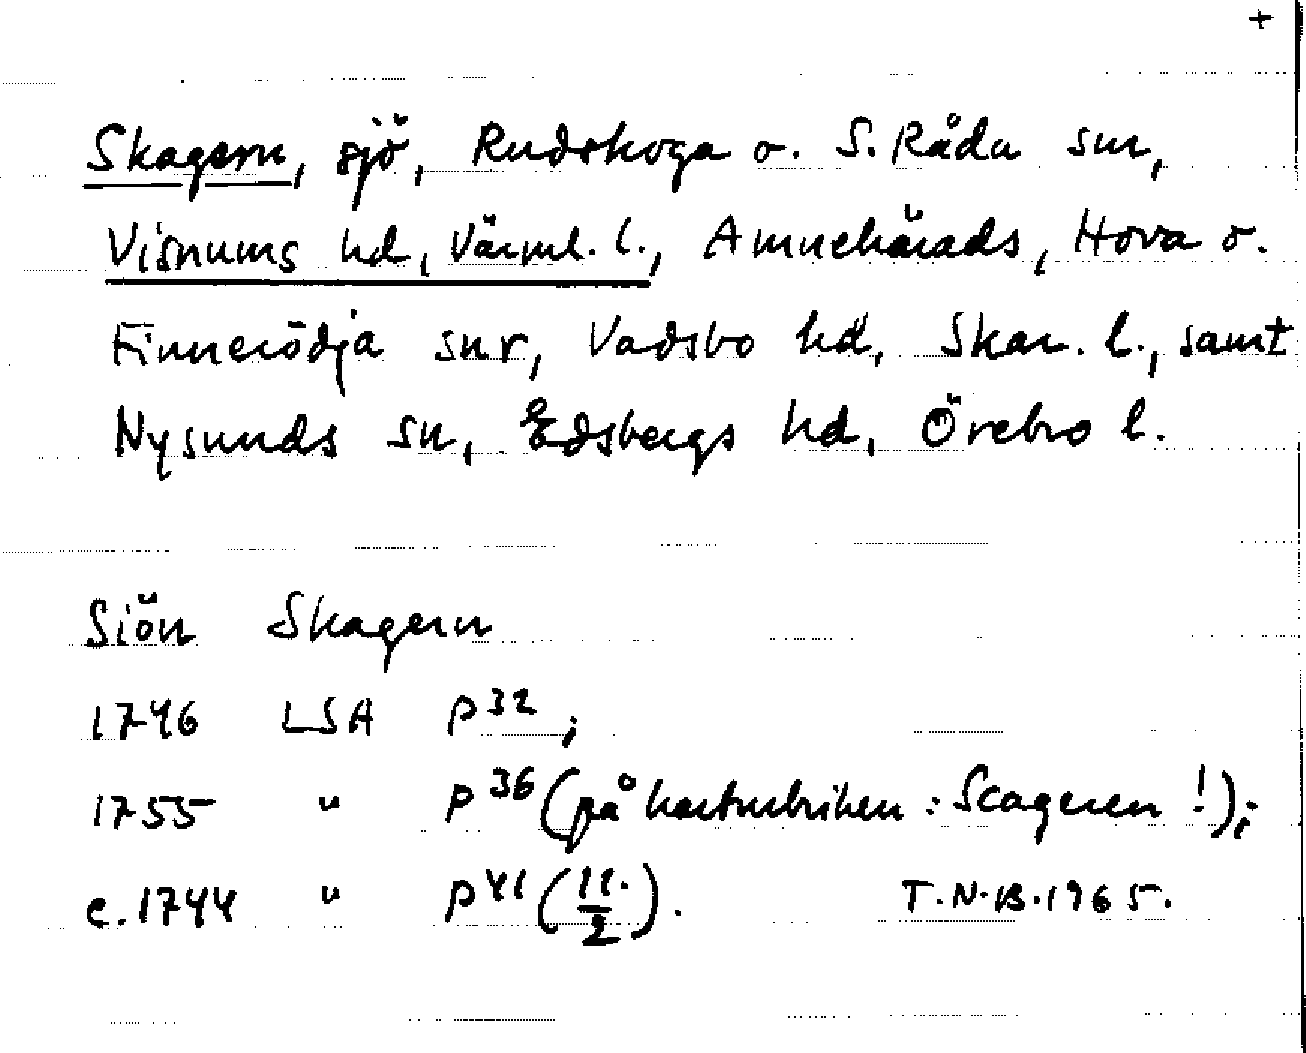 +
Skagern, sjö, Rudskoga o. S. Råda snr,
Visnums hd, Värml. l., Amnehärads, Hova o.
Finnerödja snr, Vadsbo hd, Skar. l., samt
Nysunds sn, Edsbergs hd, Örebro l.
Siön Skagern
1746 LSA P 32;
1755 " P 36 (på kartrubriken: Scageren!);
c. 1744 " P 41 (11./2).
T.N.B. 1965.